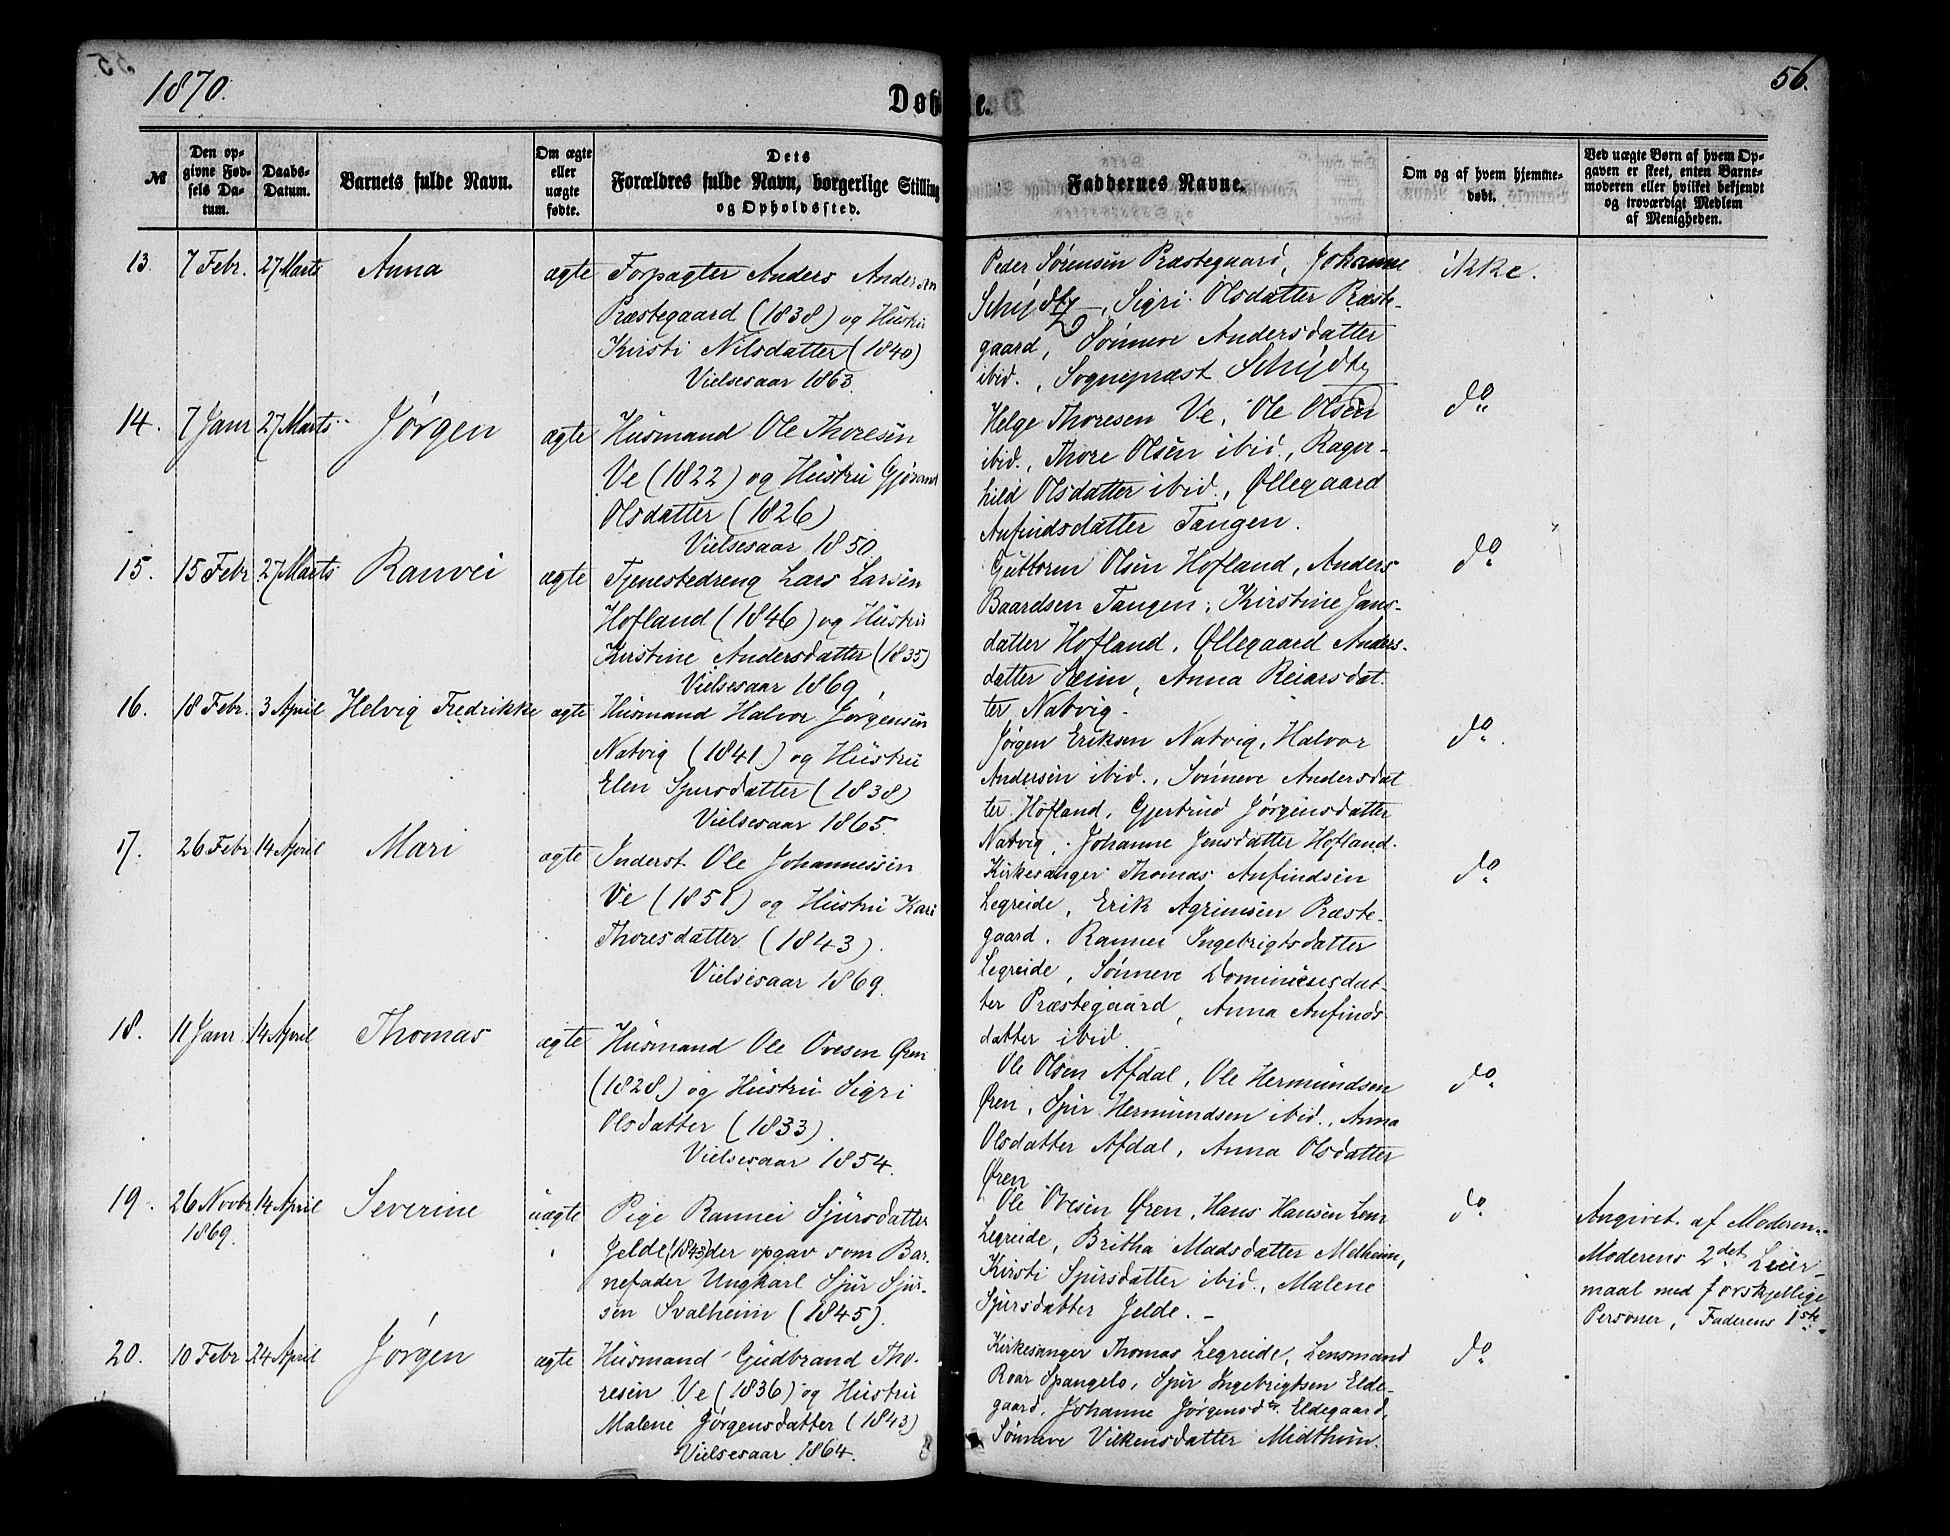 1870.
Døbte.
56.
№
Den opgivne Fødsels Datum.
Daabs-Datum.
Barnets fulde Navn.
Om ægte eller uægte fødte.
Dets Forældres fulde Navn, borgerlige Stilling og Opholdssted.
Faddernes Navne.
Om og af hvem hjemmedøbt.
Ved uægte Børn af hvem Opgaven er skeet, enten Barnemoderen eller hvilket bekjendt og troværdigt Medlem af Menigheden.
13. 7 Febr. 27 Marts Anna ægte
Forpagter Anders Andersen
Præstegaard (1838) og Hustru
Kirsti Nilsdatter (1840)
Vielsesaar 1863.
Peder Sørensen Præstegaard, Johanne
Schjødtz, Sigri Olsdatter Præste-
gaard, Sønneve Andersdatter
ibid., Sognepræst Schjødtz
ikke.
14. 7 Janr 27 Marts Jørgen ægte
Husmand Ole Thoresen
Ve (1822) og Hustru Gjørand
Olsdatter (1826)
Vielsesaar 1850.
Helge Thoresen Ve, Ole Olsen
ibid., Thore Olsen ibid., Ragn-
hild Olsdatter ibid., Øllegaard
Anfindsdatter Tangen.
do
15. 15 Febr 27 Marts Ranvei ægte
Tjenestedreng Lars Larsen
Hofland (1846) og Hustru
Kirstine Andersdatter (1835)
Vielsesaar 1869,
Guttorm Olsen Hofland, Anders
Baardsen Tangen, Kirstine Jans-
datter Hofland, Øllegaard Anders-
datter Sæim, Anna Reiarsdat-
ter Natvig.
do
16. 18 Febr. 3 April Helvig Fredrikke ægte
Husmand Halvor Jørgensen
Natvig (1841) og Hustru
Elen Sjursdatter (1838)
Vielsesaar 1865.
Jørgen Eriksen Natvig, Halvor
Andersen ibid., Sønneve Andersdat
ter Hofland, Gjertrud Jørgensdatter
Natvig, Johanne Jensdatter Hofland.
do.
17. 26 Febr 14 April Mari ægte
Inderst Ole Johannessen
Ve (1851) og Hustru Kari
Thoresdatter (1843).
Vielsesaar 1869.
Kirkesanger Thomas Anfindsen
Legreide, Erik Agrimsen Præste-
gaard, Rannei Ingebrigtsdatter
Legreide, Sønneve Dominicusdat-
ter Præstegaard, Anna Anfinds-
datter ibid.
do
18. 11 Janr 14 April Thomas ægte
Husmand Ole Ovesen Øren
(1828) og Hustru Sigri
Olsdatter (1833).
Vielsesaar 1854.
Ole Olsen Afdal, Ole Hermundsen
Øren, Sjur Hermundsen ibid., Anna
Olsdatter Afdal, Anna Olsdatter
Øren
do
19. 26 Novbr 14 April Severine uægte
1869.
Pige Rannei Sjursdatter
Jelde (1843) der opgav som Bar-
nefader Ungkarl Sjur Sjur-
sen Svalheim (1845).
Ole Ovesen Øren, Hans Hansen
Legreide, Britha Madsdatter Melheim,
Kirsti Sjursdatter ibid., Malene
Sjursdatter Jelde. -
do
Angivet af Moderen.
Moderens 2det Leier-
maal med forskjellige
Personer, Faderens 1ste.
20. 10 Febr 24 April Jørgen ægte
Husmand Gudbrand Tho-
resen Ve (1836) og Hustru
Malene Jørgensdatter (1843)
Vielsesaar 1864.
Kirkesanger Thomas Legreide, Lensmand
Roar Spangelo, Sjur Ingebrigtsen Elde-
gaard, Johanne Jørgensdtr. Eldegaard,
Sønneve Vilkensdatter Midthun.
do